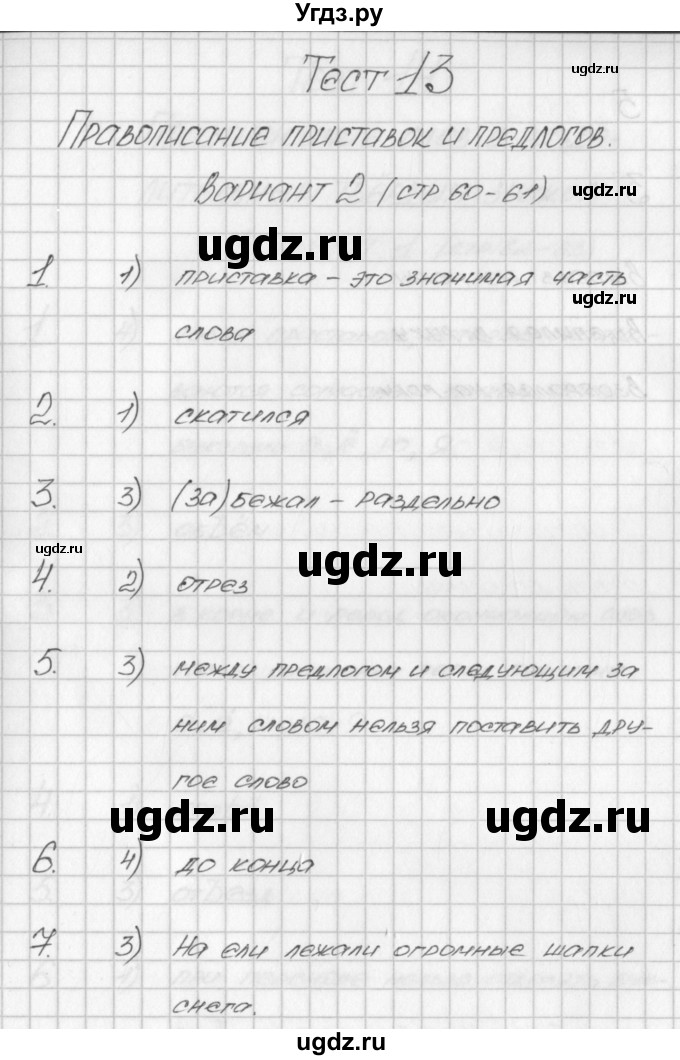 Угдз.ру
Тест 13
ugdz.ru
Правописание приставок и предлогов.
Вариант 2 (стр 60-61)
ugdz.ru
ugdz.ru
1. 1) приставка - это значимая часть
ugdz.ru
слова
2. 1) скатился
ugdz.ru
3. 3) (за)бежал - раздельно
ugdz.ru
ugdz.ru
4. 2) отрез
ugdz.ru
5. 3) между предлогом и следующим за
ним словом нельзя поставить дру-
гое слово
ugdz.ru
ugdz.ru
6. 4) до конца
7. 3) На ели лежали огромные шапки
снега.
ugdz.ru